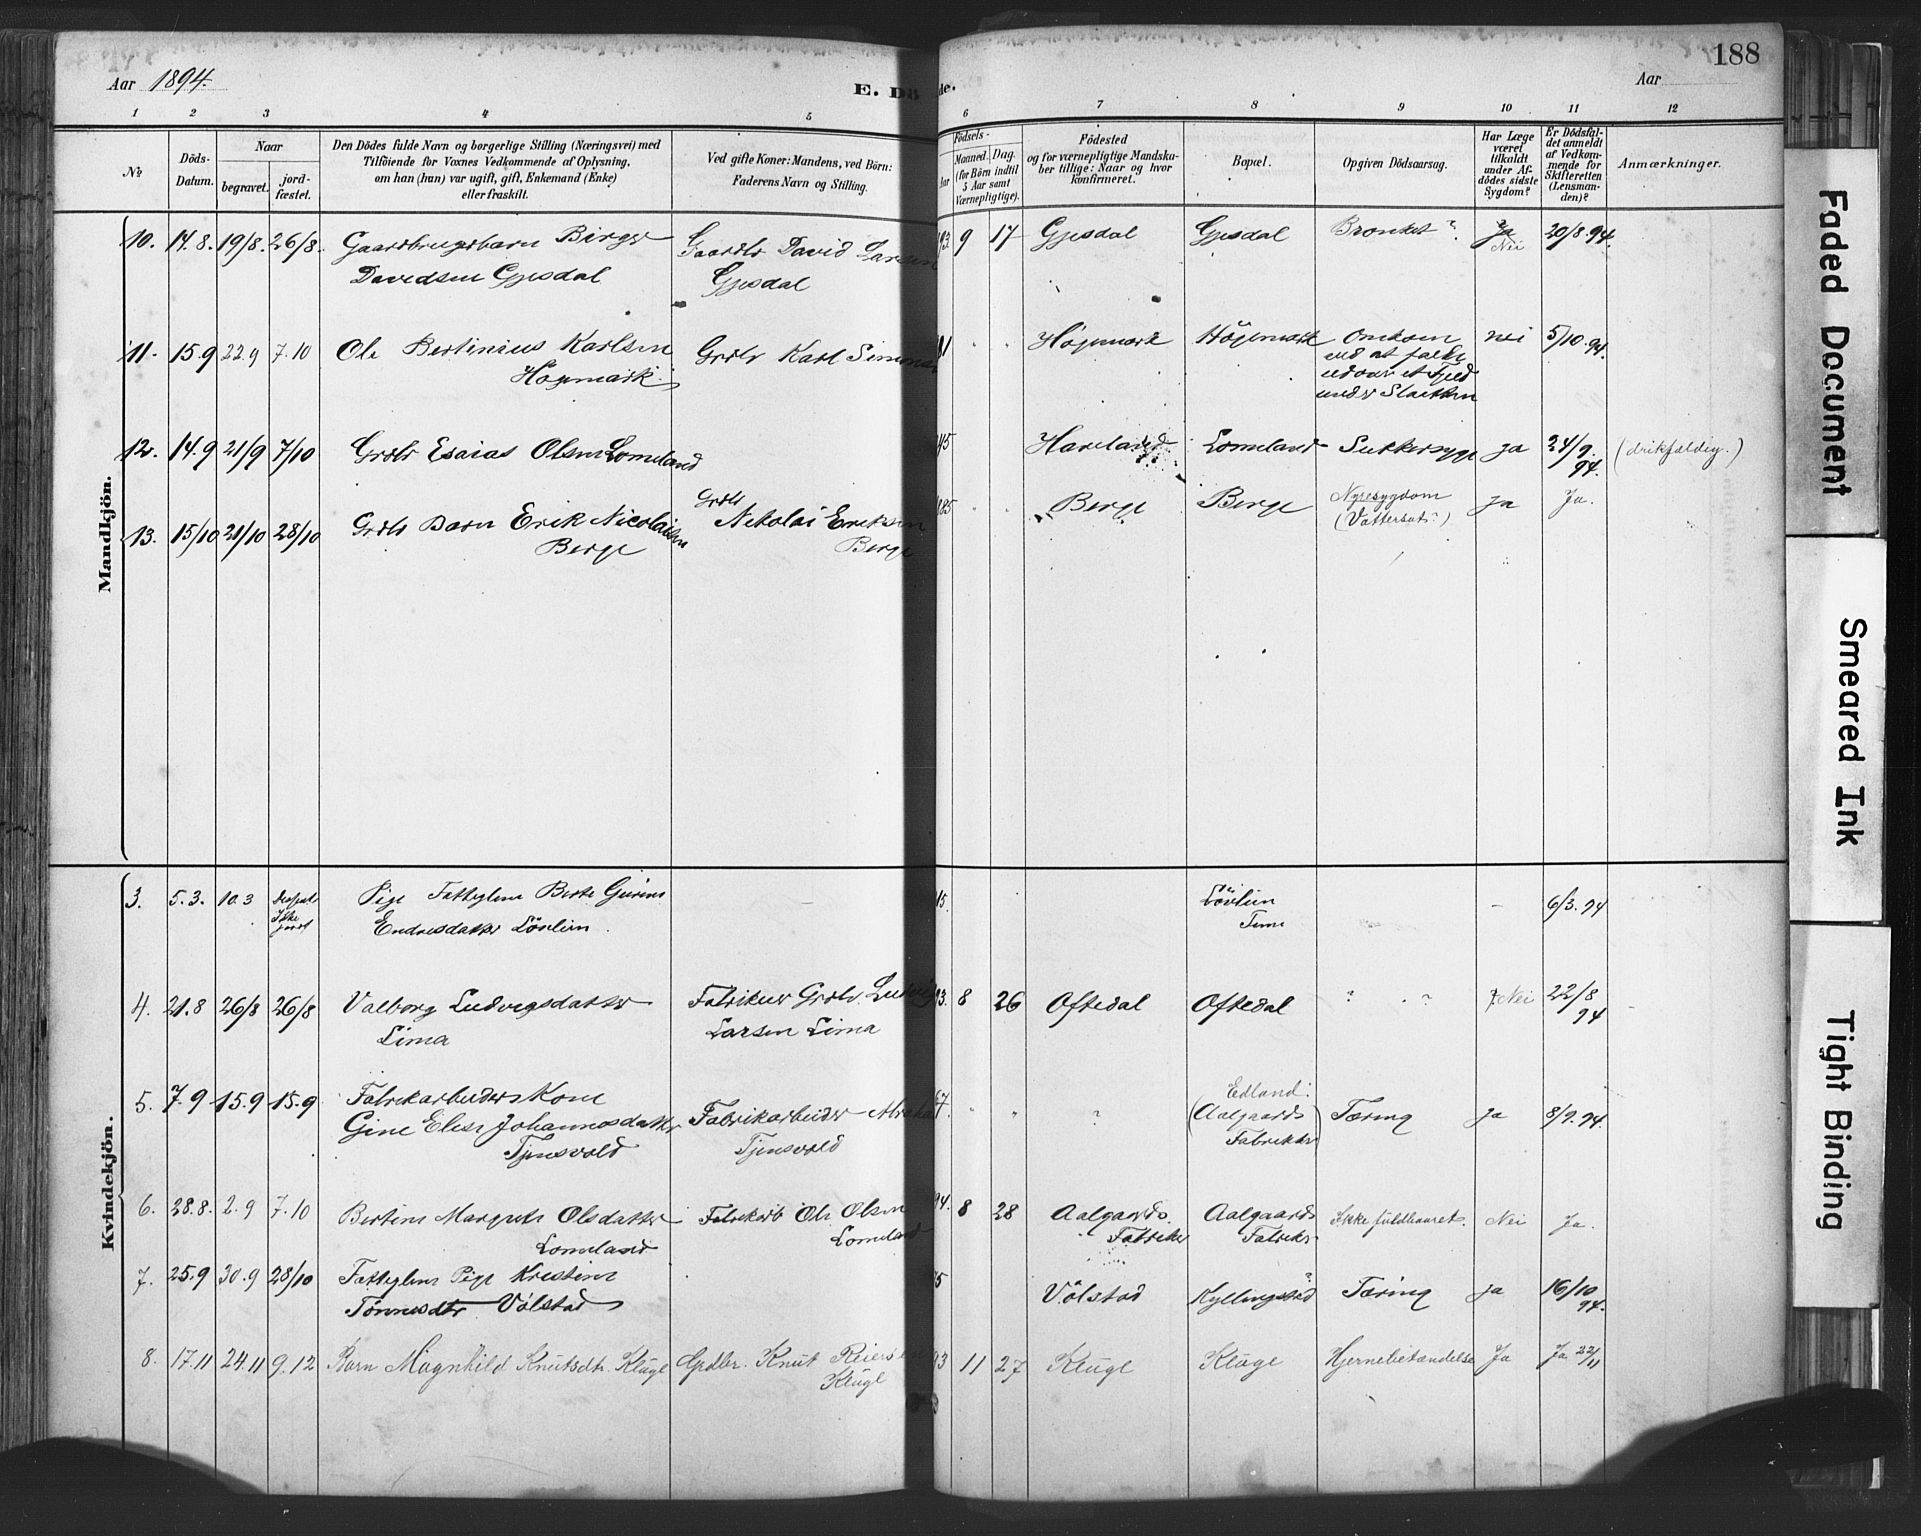 Aar 1894.
E. Dö
de.
188
Aar
1 2 3 4 5 6 7 8 9 10 11 12
No.
Döds-
Datum.
Naar
begravet.
jord-
fæstet.
Den Dödes fulde Navn og borgerlige Stilling (Næringsvei) med
Tilföiende for Voxnes Vedkommende af Oplysning,
om han (hun) var ugift, gift, Enkemand (Enke)
eller fraskilt.
Ved gifte Koner: Mandens, ved Börn:
Faderens Navn og Stilling.
Födsels-
Aar
Maaned. Dag.
(for Börn indtil
5 Aar samt
Værnepligtige).
Födested
og for værnepligtige Mandska-
ber tillige: Naar og hvor
konfirmeret.
Bopæl.
Opgiven Dödsaarsag.
Har Læge
været
tilkaldt
under Af-
dødes sidste
Sygdom?
Er Dödsfal-
det anmeldt
af Vedkom-
mende for
Skifteretten
(Lensman-
den)?
Anmærkninger.
Mandkjön.
10. 14.8. 19/8. 26/8. Gaardbrugsbarn Birger Gaardbr David Larsen 93. 9 17 Gjesdal Gjesdal Bronkit? Ja 20/8.94.
Davidsen Gjesdal Gjesdal Nei
11. 15.9 22.9 7.10 Ole Bertinius Karlsen Grdbr Karl Simonsen 81 Högemark Högemark Omkom nei 5/10.94.
Högemark. ved at falde
udover et Fjeld
under Slaatten
12. 14.9 21/9 7/10 Grdbr Esaias Olsen Lomeland 45 Haveland Lomeland Sukkersyge ja 24/9. (drikfældig.)
94.
13. 15/10 21/10 28/10 Grdbr Barn Erik Nicolaisen Grdbr 885 Berge Berge Nyresygdom ja Ja.
Berge Nikolai Eriksen (Vattersot?)
Berge
Kvindekjön.
3. 5.3. 10.3 Ikke Pige Fattiglem Berte Gurine 15. Lövlien - 6/3.94
Endresdatter Lövlien. Time
4. 21.8 26/8 26/8 Valborg Ludvigsdatter Fabrikeier Grdbr. Ludvig 93. 8 26 Oftedal Oftedal ? ? Nei 22/8
Lima Larsen Lima 94
5. 7.9 15.9 15.9 Fabrikarbeiders Kone Edland.
Gine Elise Johannesdatter Fabrikarbeider Abraham 67. ? (Aalgaards Tæring ja 8/9.94.
Tjensvold Tjensvold Fabrikker)
6. 28.8. 2.9 7.10 Bertine Margrete Olsdatter Fabrikarb Ole Olsen 94. 8 28 Aalgaards Aalgaards Ikke fuldbaaret. Nei Ja.
Lomeland Lomeland Fabriker Fabriker
7. 25.9 30.9 28/10 Fattiglem Pige Kristine 75 Völstad Kyllingstad? Tæring ja 16/10
Tönnesdtr Völstad 94.
8. 17.11 24.11 9.12 Barn Magnhild Knutsdtr. Kluge Gpdbr. Knut Reiersen 93 11 27 Kluge Kluge Hjernebetændelse Ja Ja 22/11
Kluge
Faded Document
Smeared Ink
Tight Binding